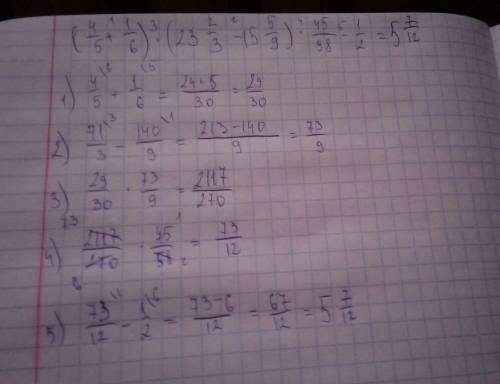 (4/5 + 1/6) · (23 2/3 − 15 5/9) · 45/58 − 1/2 = 5 7/12
1) 4/5 + 1/6 = 24+5/30 = 29/30
2) 71/3 − 140/9 = 213−140/9 = 73/9
3) 29/30 · 73/9 = 2117/270
4) 2117/270 · 45/58 = 73/12
5) 73/12 − 1/2 = 73−6/12 = 67/12 = 5 7/12